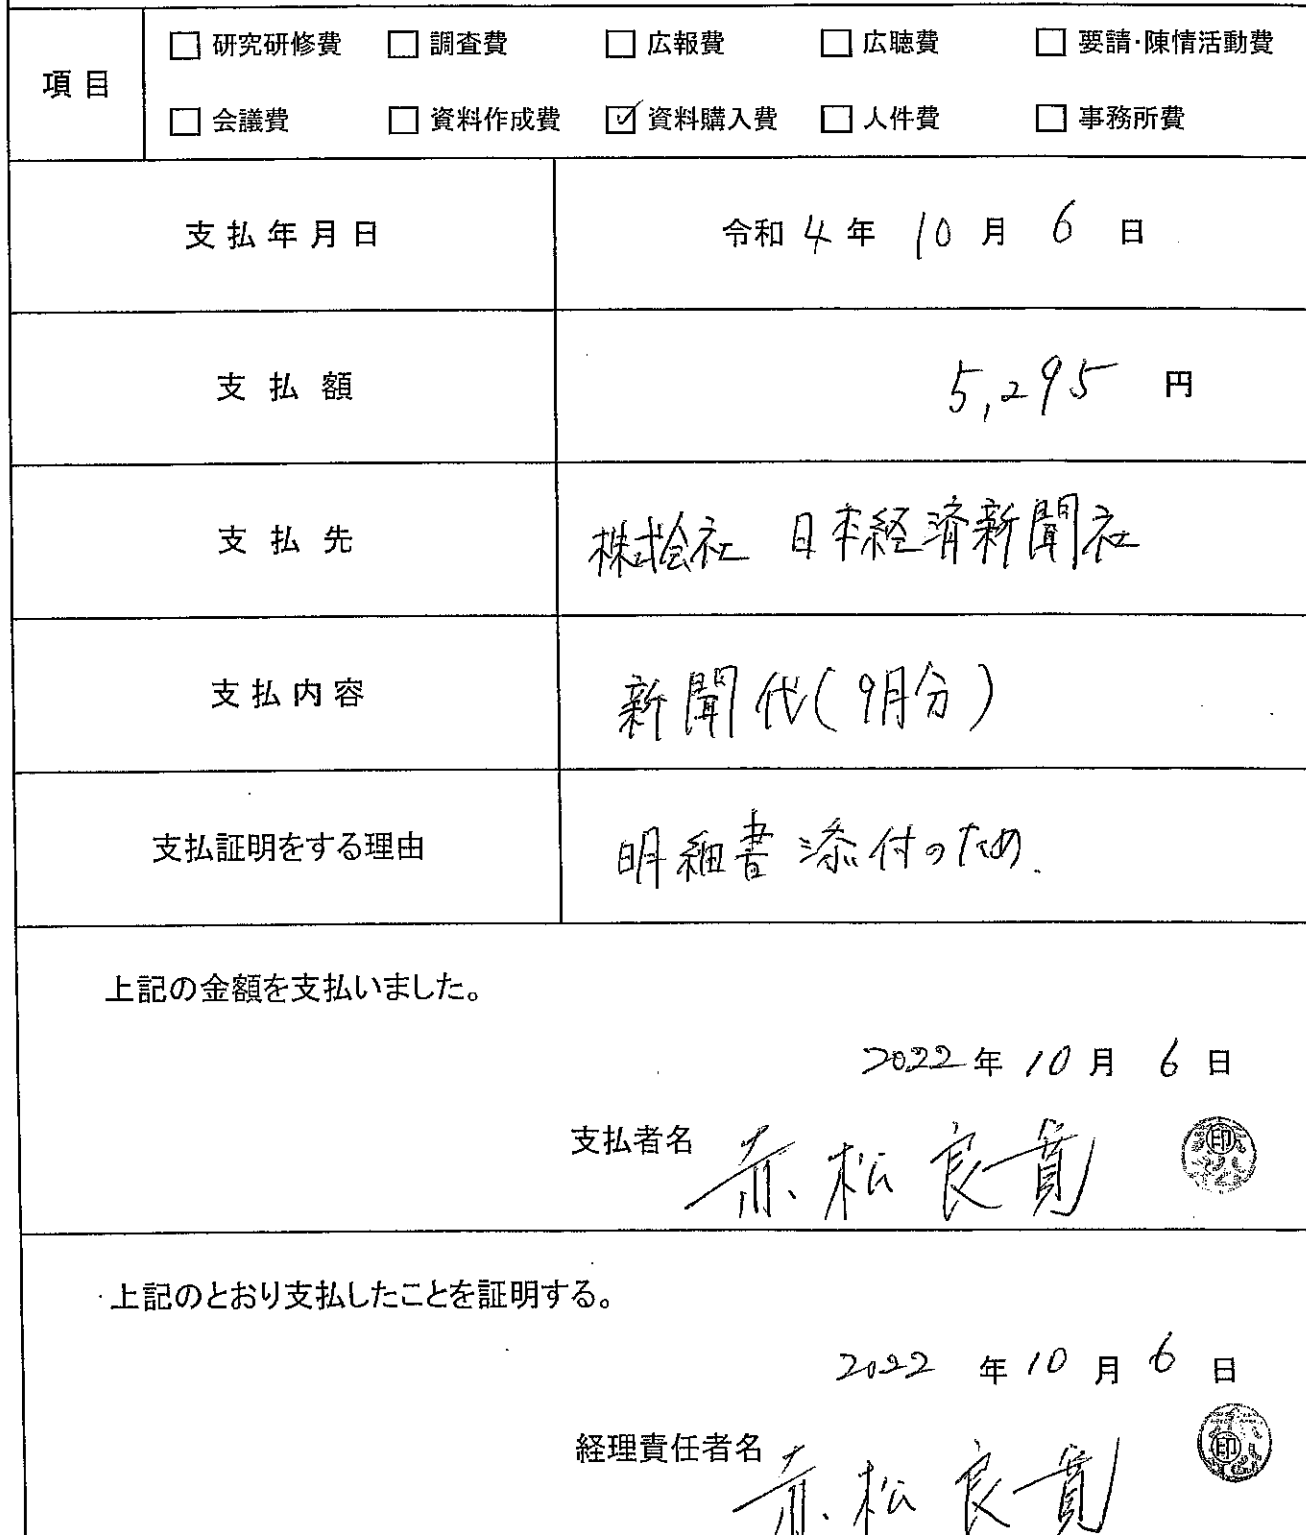 項目
□ 研究研修費 □ 調査費 □ 広報費 □ 広聴費 □ 要請・陳情活動費
□ 会議費 □ 資料作成費 ☑ 資料購入費 □ 人件費 □ 事務所費
支払年月日 令和 4 年 10 月 6 日
支払額 5,295 円
支払先 株式会社 日本経済新聞社
支払内容 新聞代(9月分)
支払証明をする理由 明細書添付のため.
上記の金額を支払いました。
2022 年 10 月 6 日
支払者名 赤松良寛 印
上記のとおり支払したことを証明する。
2022 年 10 月 6 日
経理責任者名 赤松良寛 印